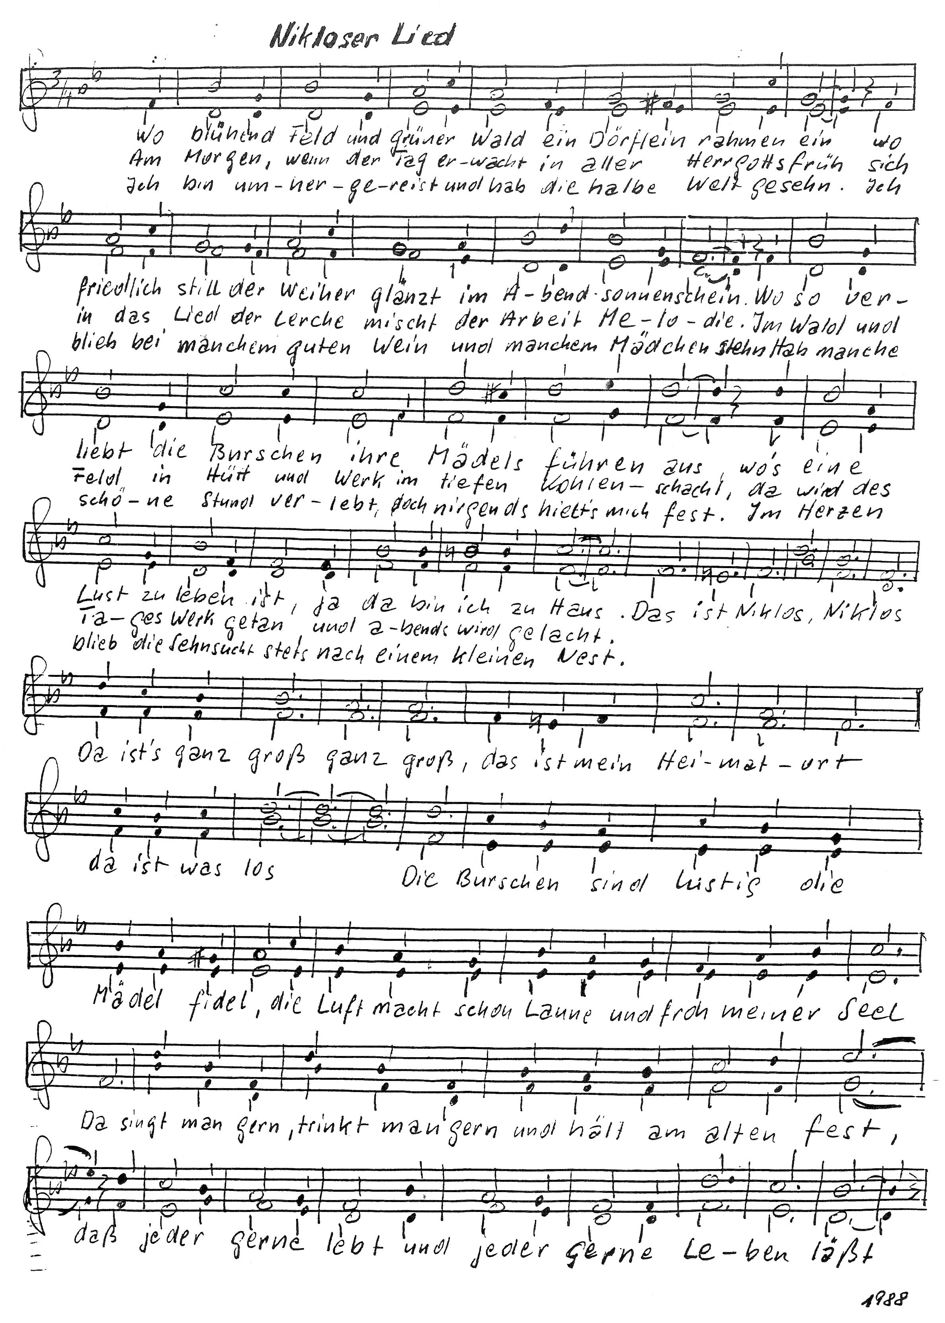 Nikloser Lied
3/4
Wo blühend Feld und grüner Wald ein Dörflein rahmen ein wo
Am Morgen, wenn der Tag er-wacht in aller Herrgottsfrüh sich
Ich bin um-her-ge-reist und hab die halbe Welt gesehn. Ich
friedlich still der Weiher glänzt im A-bend-sonnenschein. Wo so ver-
in das Lied der Lerche mischt der Arbeit Me-lo-die. Im Wald und
blieb bei manchem guten Wein und manchem Mädchen stehn Hab manche
liebt die Burschen ihre Mädels führen aus, wo's eine
Feld, in Hütt und Werk im tiefen Kohlen-schacht, da wird des
schö-ne Stund ver-lebt, doch nirgends hielt's mich fest. Im Herzen
Lust zu leben ist, ja da bin ich zu Haus. Das ist Niklos, Niklos
Ta-ges Werk getan und a-bends wird gelacht.
blieb die Sehnsucht stets nach einem kleinen Nest.
Da ist's ganz groß ganz groß, das ist mein Hei-mat-ort
da ist was los Die Burschen sind lustig die
Mädel fidel, die Luft macht schon Laune und froh meiner Seel
Da singt man gern, trinkt man gern und hält am alten fest,
daß jeder gerne lebt und jeder gerne Le-ben läßt
1988